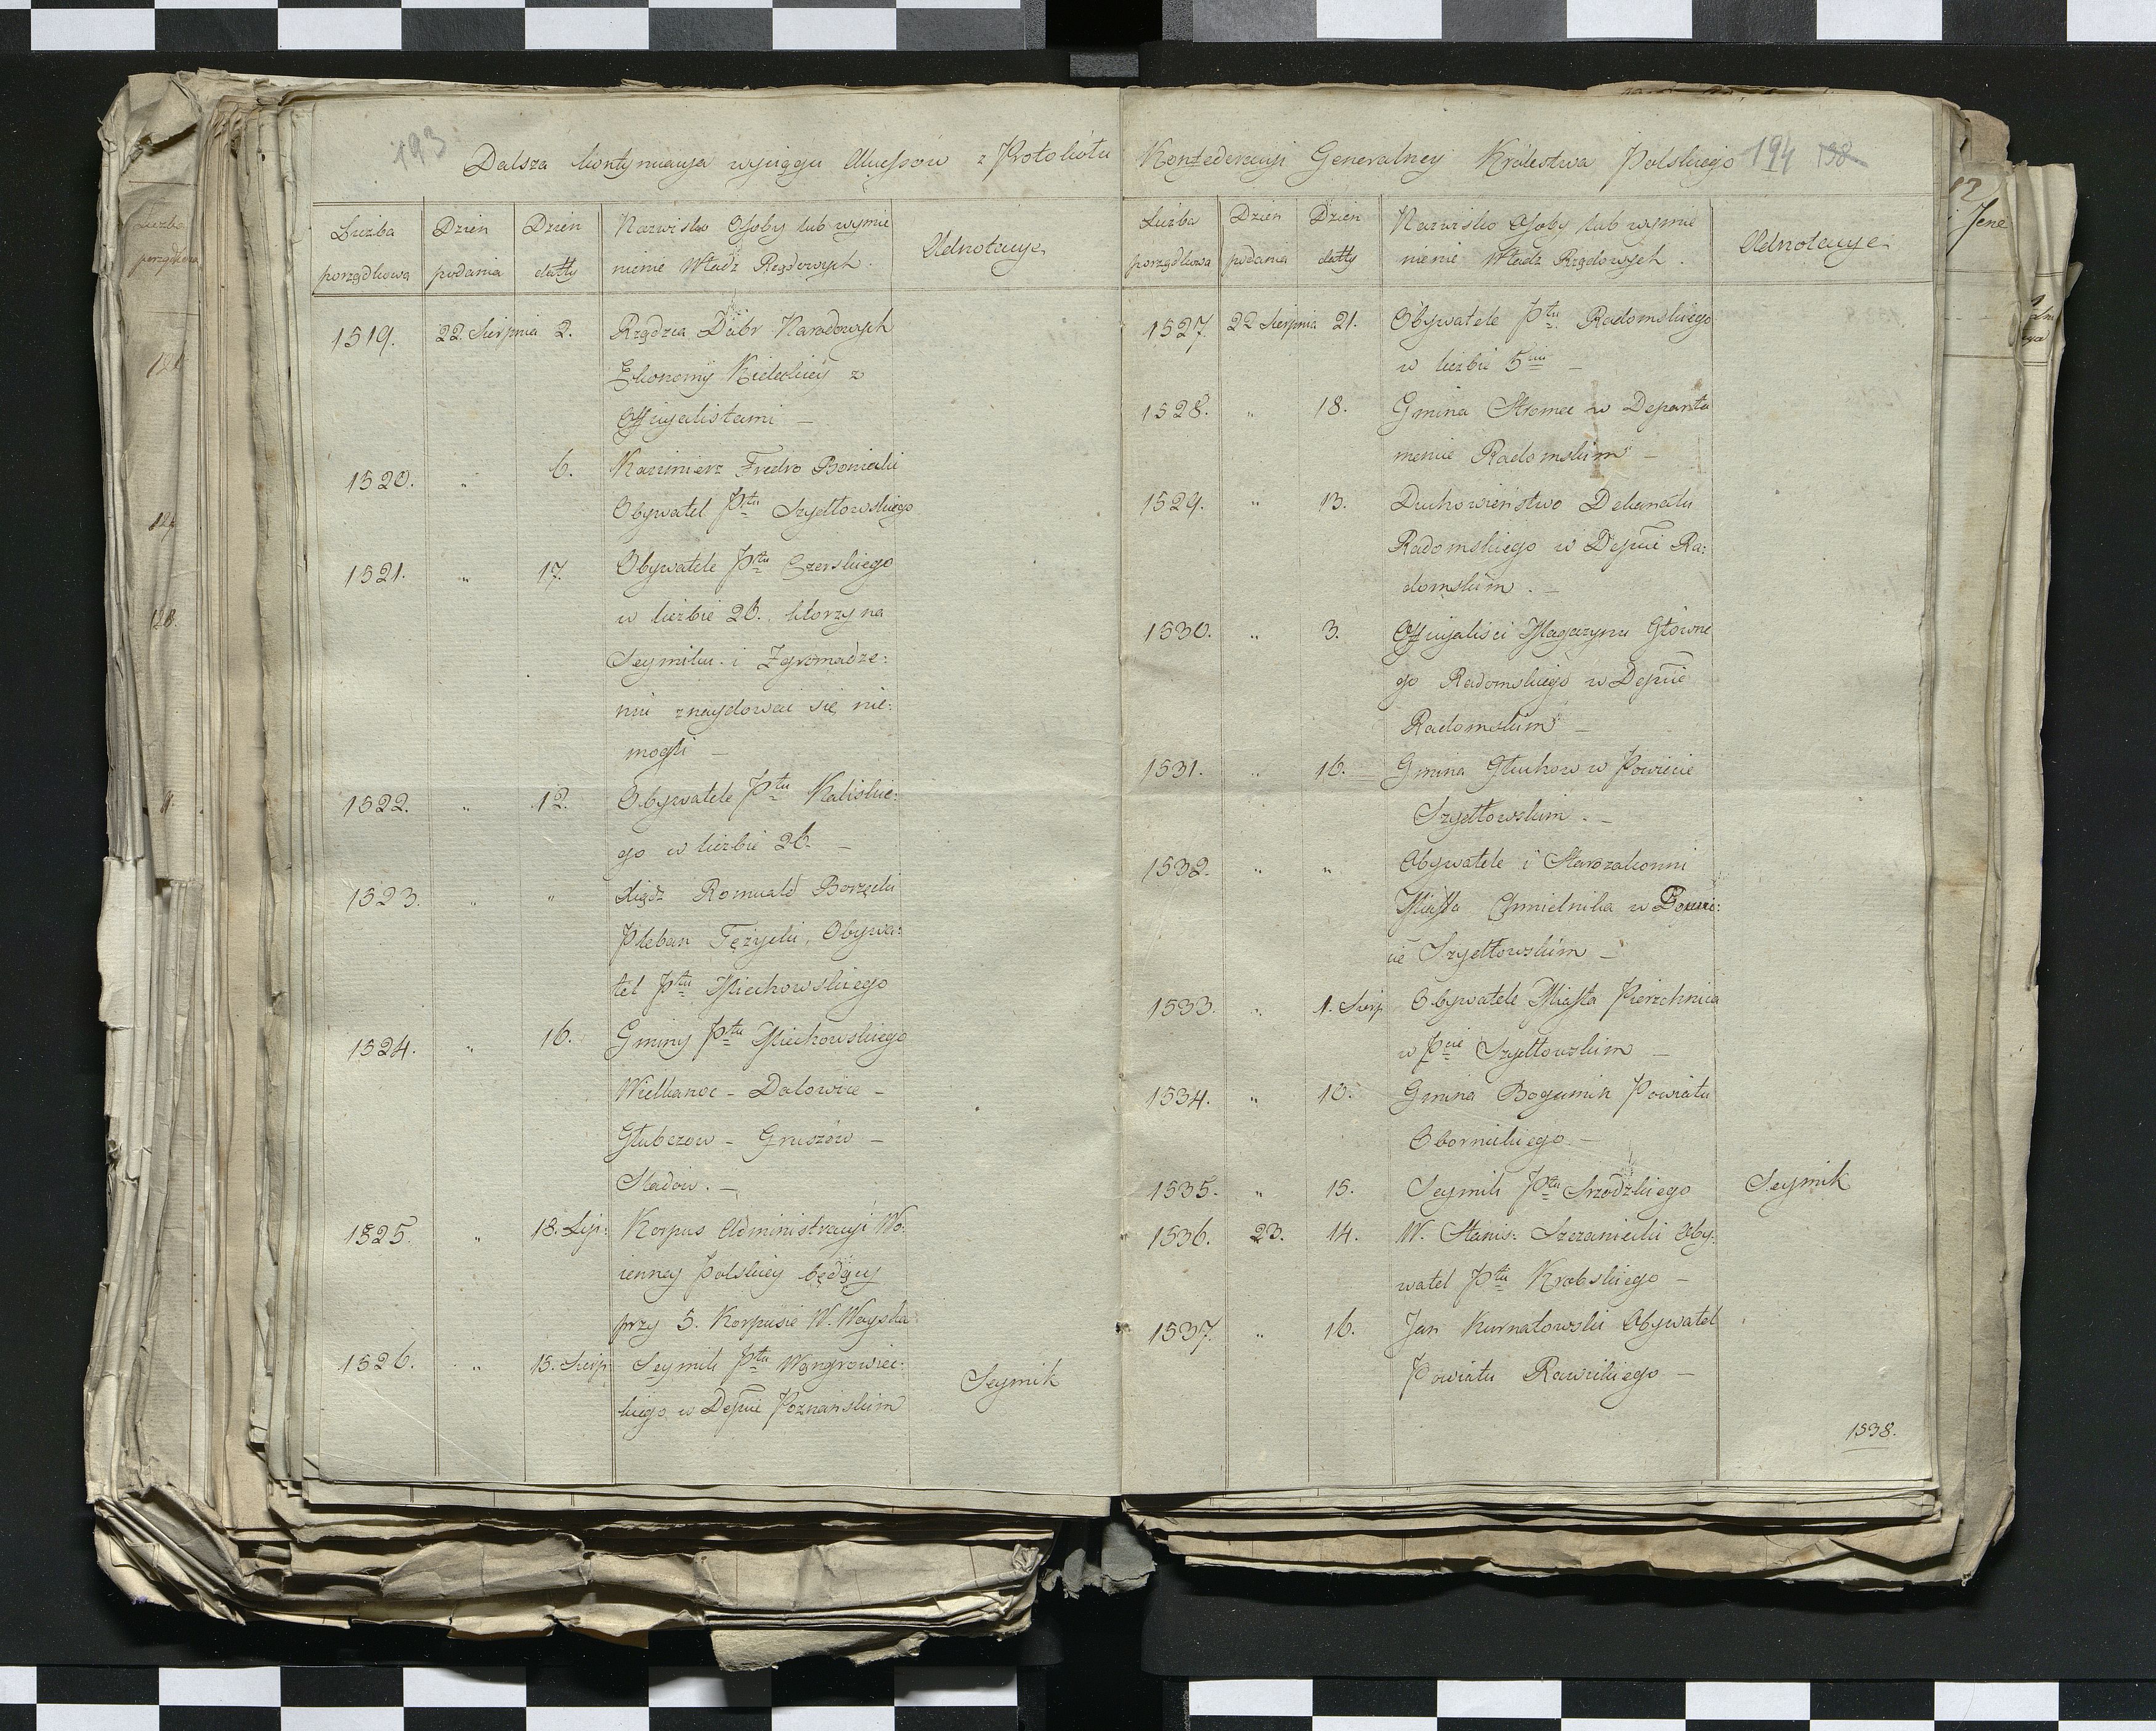 193.
Dalsza kontynuacya wyciągu Akcessów z Protokółu
Liczba porządkowa
Dzień podania
Dzień datty
Nazwisko Osoby lub wymie
nienie Władz Rządowych.
Adnotacye
1519. 22 Sierpnia 2. Rządzca Dóbr Narodowych
Ekonomij Kieleckiey z
Officyalistami –
1520. „ 6. Kazimierz Fredro Boniecki
Obywatel Ptu Szydłowskiego
1521. „ 17. Obywatele Ptu Czerskiego
w liczbie 26. którzy na
Seymiku i Zgromadze:
niu znaydować się nie:
mogli –
1522. „ 12. Obywatele Ptu Kaliskie:
go w liczbie 26. –
1523. „ „ Xiądz Romuald Borzęcki
Pleban Tężycki, Obywa:
tel Ptu Miechowskiego
1524. „ 16. Gminy Ptu Miechowskiego
Wielkanoc – Dałowice –
Głupczow – Gruszów –
Sładow. –
1525. „ 18. Lip: Korpus Administracyi Wo:
ienney Polskiey będący
przy 5. Korpusie W. Woyska
1526. „ 15. Sierp: Seymik Ptu Wągrowiec:
kiego w Depcie Poznańskim
Seymik
Konfederacyi Generalney Królestwa Polskiego
194 198
Liczba porządkowa
Dzień podania
Dzień datty
Nazwisko Osoby lub wymie
nienie Władz Rządowych.
Adnotacye
1527. 22 Sierpnia 21. Obywatele Ptu Radomskiego
w liczbie 5ciu –
1528. „ 18. Gmina Stromec w Departa
mencie Radomskim –
1529. „ 13. Duchowieństwo Dekanatu
Radomskiego w Depcie Ra:
domskim. –
1530. „ 3. Officyaliści Magazynu Główne
go Radomskiego w Depcie
Radomskim –
1531. „ 16. Gmina Głuchow w Powiecie
Szydłowskim. –
1532. „ „ Obywatele i Starozakonni
Miasta Chmielnika w Powie:
cie Szydłowskim –
1533. „ 1. Sierp Obywatele Miasta Pierzchnica
w Pcie Szydłowskim –
1534. „ 10. Gmina Bogumik Powiatu
Obornickiego. –
1535. „ 15. Seymik Ptu Srzodzkiego
Seymik
1536. 23. 14. W. Stanis: Szczaniecki Oby:
watel Ptu Krobskiego –
1537. „ 16. Jan Kurnatowski Obywatel
Powiatu Rawickiego –
1538.